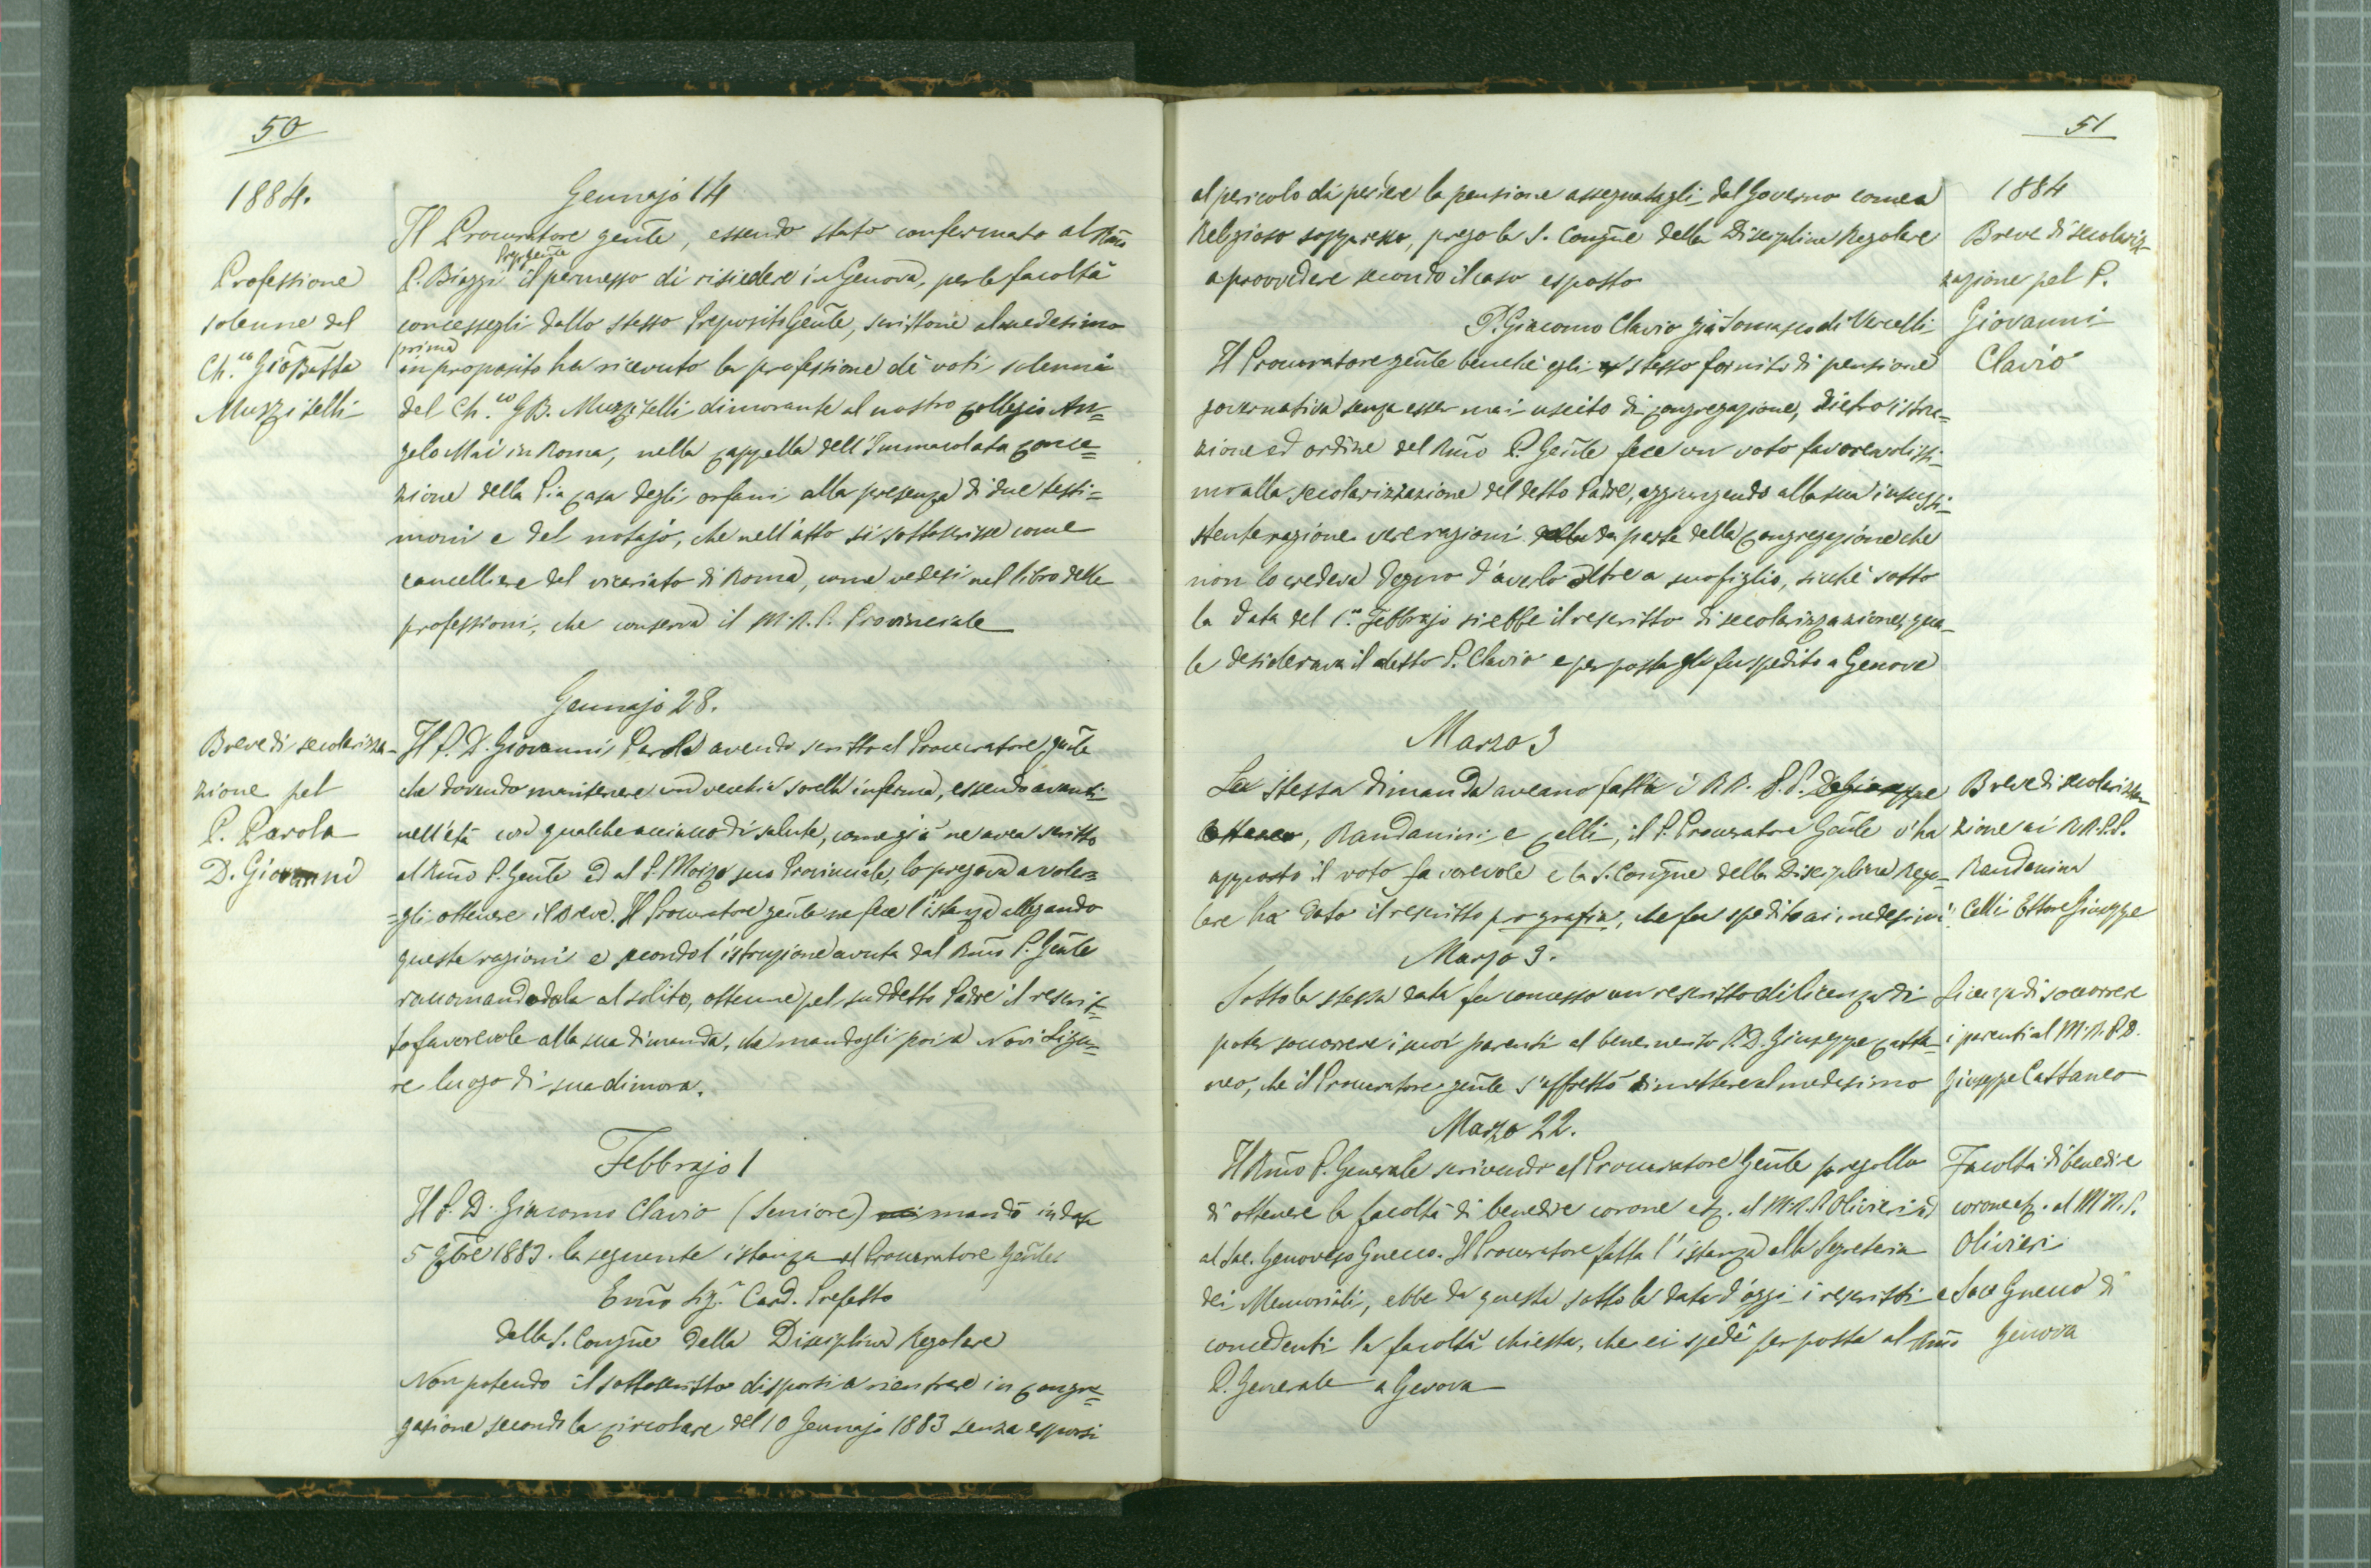 50
1884.
Gennajo 14
Il Procuratore gen̄te, essendo stato confermato al Rm̄o
Prepgen̄te
P. Biaggi il permesso di risiedere in Genova, per la facoltà
concessagli dallo stesso Preposito Gen̄le, scrittone al medesimo
prima
in proposito ha ricevuto la professione dè voti solenni
del Ch.co GB. Muzzitelli dimorante al nostro collegio An=
gelo Mai in Roma, nella cappella dell'Immacolata Conce=
zione della Pia casa degli orfani alla presenza di due testi=
moni e del notajo, che nell'atto si sottoscrisse come
cancelliere del vicariato di Roma, come vedesi nel libro delle
professioni, che conserva il M.R.P. Provinciale
Professione
solenne del
Ch.co GioBatta
Muzzitelli
Gennajo 28.
Il P. D. Giovanni Parola avendo scritto al Procuratore gen̄le
che dovendo mantenere una vecchia sorella inferma, essendo avanti
nell'età con qualche acciacco di salute, come già ne avea scritto
al Rm̄o P. Gen̄le ed al P. Moizo suo Provinciale, lo pregava a voler=
=gli ottenere il Breve. Il Procuratore gen̄le ne fece l'istanza allegando
queste ragioni e secondo l'istruzione avuta dal Rm̄o P. Gen̄le
raccomandandola al solito, ottenne pel suddetto Padre il rescrit=
to favorevole alla sua dimanda, che mandogli poi a Novi Ligu=
re luogo di sua dimora.
Breve di secolarizza-
zione pel
P. Parola
D. Giovanni
Febbrajo 1
Il P. D. Giacomo Clavio (Seniore) mandò in data
5 9bre 1883. la seguente istanza al Procuratore Gen̄le
Em̄o Sig.r Card. Prefetto
della S. Conḡne della Disciplina Regolare
Non potendo il sottoscritto disporsi a rientrare in congre=
gazione secondo la circolare del 10 Gennajo 1883 senza esporsi
51
al pericolo di perdere la pensione assegnatagli dal Governo come a
Religioso soppresso, prega la S. Conḡne della Disciplina Regolare
a provvedere secondo il caso esposto
P. Giacomo Clavio già Somasco di Vercelli
Il Procuratore gen̄le benchè egli stesso fornito di pensione
governativa senza esser mai uscito di congregazione, dietro istru=
zione ed ordine del Rm̄o P. Gen̄le fece un voto favorevolissi-
mo alla secolarizzazione del detto Padre, aggiungendo alla sua insussi-
stente ragione vere ragioni da parte della Congregazione che
non lo credeva degno d'averlo oltre a suo figlio, sicchè sotto
la data del 1.o Febbrajo si ebbe il rescritto di secolarizzazione, qua-
le desiderava il detto P. Clavio e per posta gli fu spedito a Genova
1884
Breve di secolariz-
zazione pel P.
Giovanni
Clavio
Marzo 3
La stessa dimanda aveano fatta i RR. P.P. DeGiuseppe
Randanini e Celli, il P. Procuratore Gen̄le v'ha
apposto il voto favorevole e la S. Conḡne della Disciplina Rego=
lare ha dato il rescritto pro gratia, che fu spedito ai medesimi.
Breve di secolarizza-
zione ai RR.P.P.
Randanini
Celli Ettore Giuseppe
Marzo 3.
Sotto la stessa data fu concesso un rescritto di licenza di
poter soccorrere i suoi parenti al benemerito P. D. Giuseppe Catta-
neo, che il Procuratore gen̄le s'affrettò di mettere al medesimo
Licenza di soccorrere
i parenti al M.R.P.D.
Giuseppe Cattaneo
Marzo 22.
Il Rm̄o P. Generale scrivendo al Procuratore Gen̄le pregollo
di ottenere la facoltà di benedire corone etz. al M.R.P. Olivieri ed
al Sac. Genovese Gnecco. Il Procuratore fatta l'istanza alla Segreteria
dei Memoriali, ebbe da questa sotto la data d'oggi i rescritti
concedenti la facoltà chiesta, che ei spedì per posta al Rm̄o
P. Generale a Genova
Facoltà di benedire
corone etz. al M.R.P.
Olivieri
e Sace Gnecco di
Genova